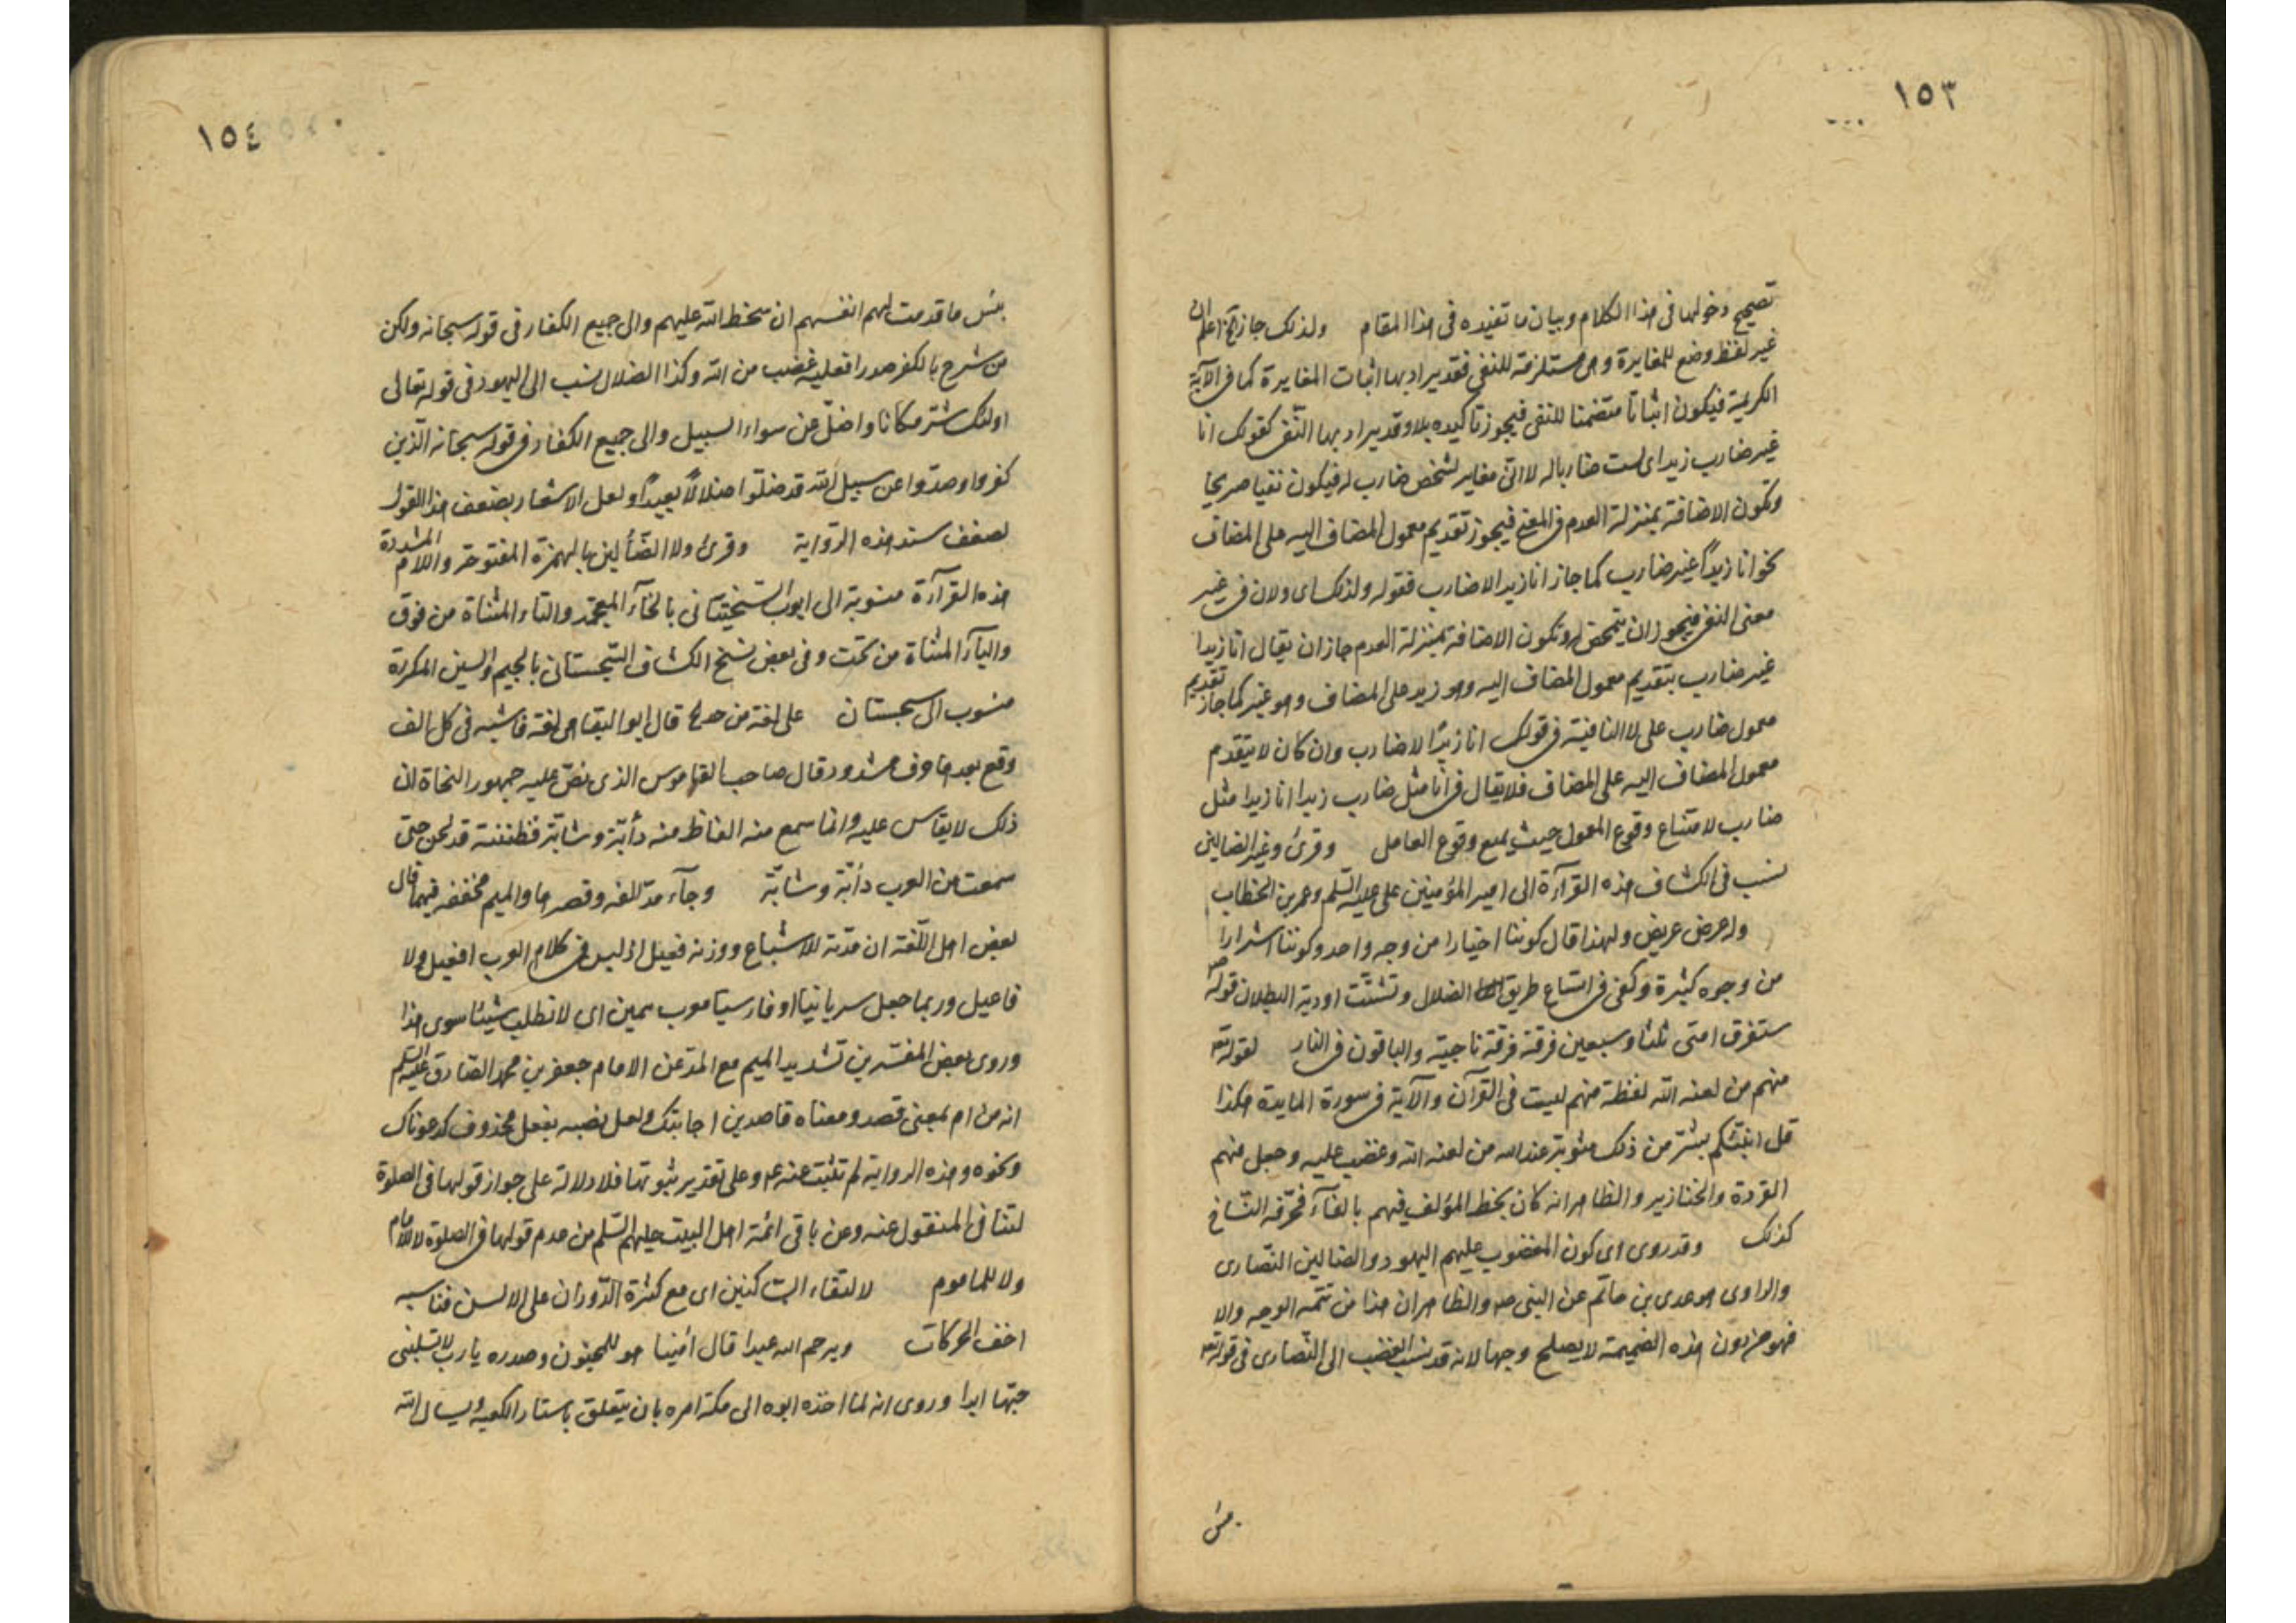 ١٥٣
تصحيح دخولها فى هذا الكلام وبيان ما تفيده فى هذا المقام ولذلك جاز الخ اعلم ان
غير لفظ وضع للمغايرة وهى مستلزمة للنفى فقد يراد بها اثبات المغايرة كما فى الآية
الكريمة فيكون اثباتا متضمنا للنفى فيجوز تأكيده بلا وقد يراد بها النفى كقولك انا
غير ضارب زيدا اى لست ضاربا له لا انى مغاير لشخص ضارب له فيكون نفيا صريحا
وتكون الاضافة بمنزلة العدم فى المعنى فيجوز تقديم معمول المضاف اليه على المضاف
نحو انا زيداً غير ضارب كما جاز انا زيدا لا ضارب فقوله ولذلك اى ولان فى غير
معنى النفى فيجوز ان يتمحض له وتكون الاضافة بمنزلة العدم جاز ان يقال انا زيدا
غير ضارب بتقديم معمول المضاف اليه وهو زيد على المضاف وهو غير كما جاز تقديم
معمول ضارب على لا النافية فى قولك انا زيدًا لا ضارب وان كان لا يتقدم
معمول المضاف اليه على المضاف فلا يقال فى انا مثل ضارب زيدا انا زيدا مثل
ضارب لامتناع وقوع المعمول حيث يمنع وقوع العامل وقرئ وغير الضالين
نسب فى الكشاف هذه القرآءة الى امير المؤمنين على عليه السّلم وعمر بن الخطاب
وله عرض عريض ولهذا قال كوننا اخيارا من وجه واحد وكوننا اشرارا
من وجوه كثيرة وكفى فى اتساع طريق الضلال وتشتّت اودية البطلان قوله ص
ستفرق امتى ثلثا وسبعين فرقة فرقة ناجية والباقون فى النار لقوله تعه
منهم من لعنه الله لفظة منهم ليست فى القرآن والآية فى سورة المايدة هكذا
قل انبئكم بشرّ من ذلك مثوبة عند الله من لعنه الله وغضب عليه وجعل منهم
القردة والخنازير والظاهر انه كان بخط المؤلف فيهم بالفآء فحرّفه النّساخ
كذلك وقد روى اى كون المغضوب عليهم اليهود والضالين النّصارى
والراوى هو عدى بن حاتم عن النبى صه والظاهر ان هذا من تتمه الوجه والا
فهو من دون هذه الضميمة لا يصلح وجها لانه قد نسب الغضب الى النّصارى فى قوله تعه
بئس
١٥٤
بئس ما قدمت لهم انفسهم ان سخط الله عليهم والى جميع الكفار فى قوله سبحانه ولكن
من شرح بالكفر صدرا فعليه غضب من الله وكذا الضلال نسب الى اليهود فى قوله تعالى
اولئك شرّ مكانا واضلّ عن سواء السبيل والى جميع الكفار فى قوله سبحانه الّذين
كفروا وصدّوا عن سبيل الله قد ضلّوا ضلالاً بعيداً ولعل الاشعار بضعف هذا القول
لضعف سند هذه الرّواية وقرئ ولا الضّألين بالهمزة المفتوحة واللام المشددة
هذه القرآءة منسوبة الى ايوب السّختيانى بالخآء المعجمة والتاء المثناة من فوق
واليآء المثناة من تحت وفى بعض نسخ الكشاف السّجستانى بالجيم والسين المكررة
منسوب الى سجستان على لغة من جد الخ قال ابو البقا هى لغة فاشية فى كل الف
وقع بعدها حرف مشدد وقال صاحب القاموس الذى نصّ عليه جمهور النحاة ان
ذلك لا يقاس عليه وانما سمع منه الفاظ منه دأبّة وشأبّة فظننته قد لحن حتى
سمعت من العرب دأبّة وشأبّة وجآء مدّ الفه وقصرها والميم مخففه فيهما قال
بعض اهل اللّغة ان مدّته للاشباع ووزنه فعيل اذ ليس فى كلام العرب افعيل ولا
فاعيل وربما جعل سريانيا او فارسيا معرب همين اى لا نطلب شيئا سوى هذا
وروى بعض المفسّرين تشديد الميم مع المدّ عن الامام جعفر بن محمد الصّادق عليه السّلم
انه من ام بمعنى قصد ومعناه قاصدين اجابتك ولعل نصبه بفعل محذوف كدعوناك
ونحوه وهذه الرواية لم تثبت عنه ع وعلى تقدير ثبوتها فلا دلالة على جواز قولها فى الصلوة
لتنافى المنقول عنه وعن باقى ائمّة اهل البيت عليهم السّلم من عدم قولها فى الصلوة لا للامام
ولا للماموم لالتقاء السّاكنين اى مع كثرة الدّوران على الالسن فناسبه
اخف الحركات ويرحم الله عبدا قال امينا هو للمجنون وصدره يا رب لا تسلبنى
حبّها ابدا وروى انه لما اخذه ابوه الى مكة امره بان يتعلق باستار الكعبه ويسال الله